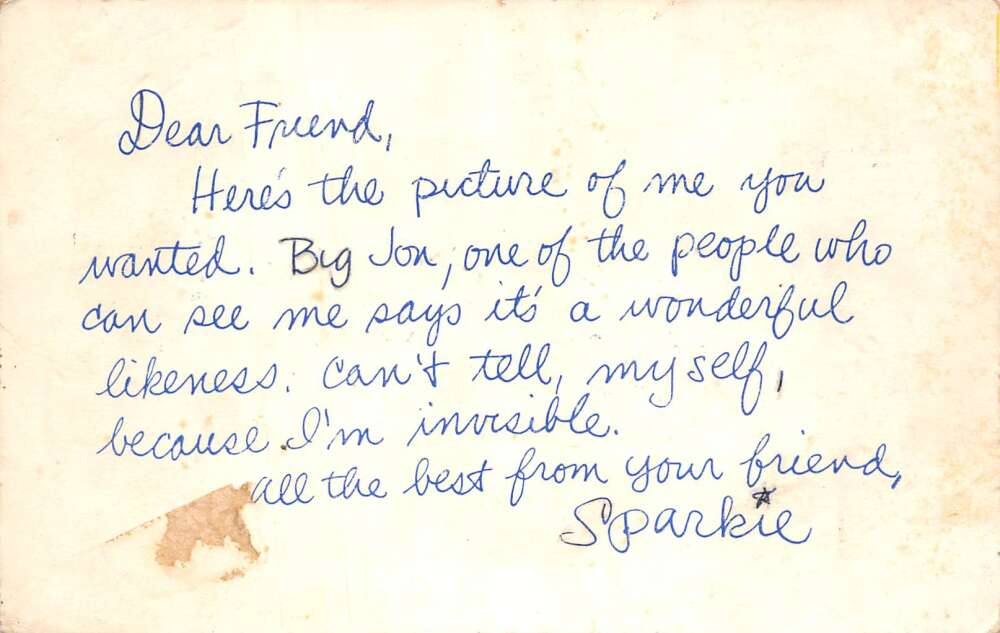 Dear Friend,
Here's the picture of me you
wanted. Big Jon, one of the people who
can see me says it's a wonderful
likeness. Can't tell, myself,
because I'm invisible.
All the best from your friend,
Sparkie